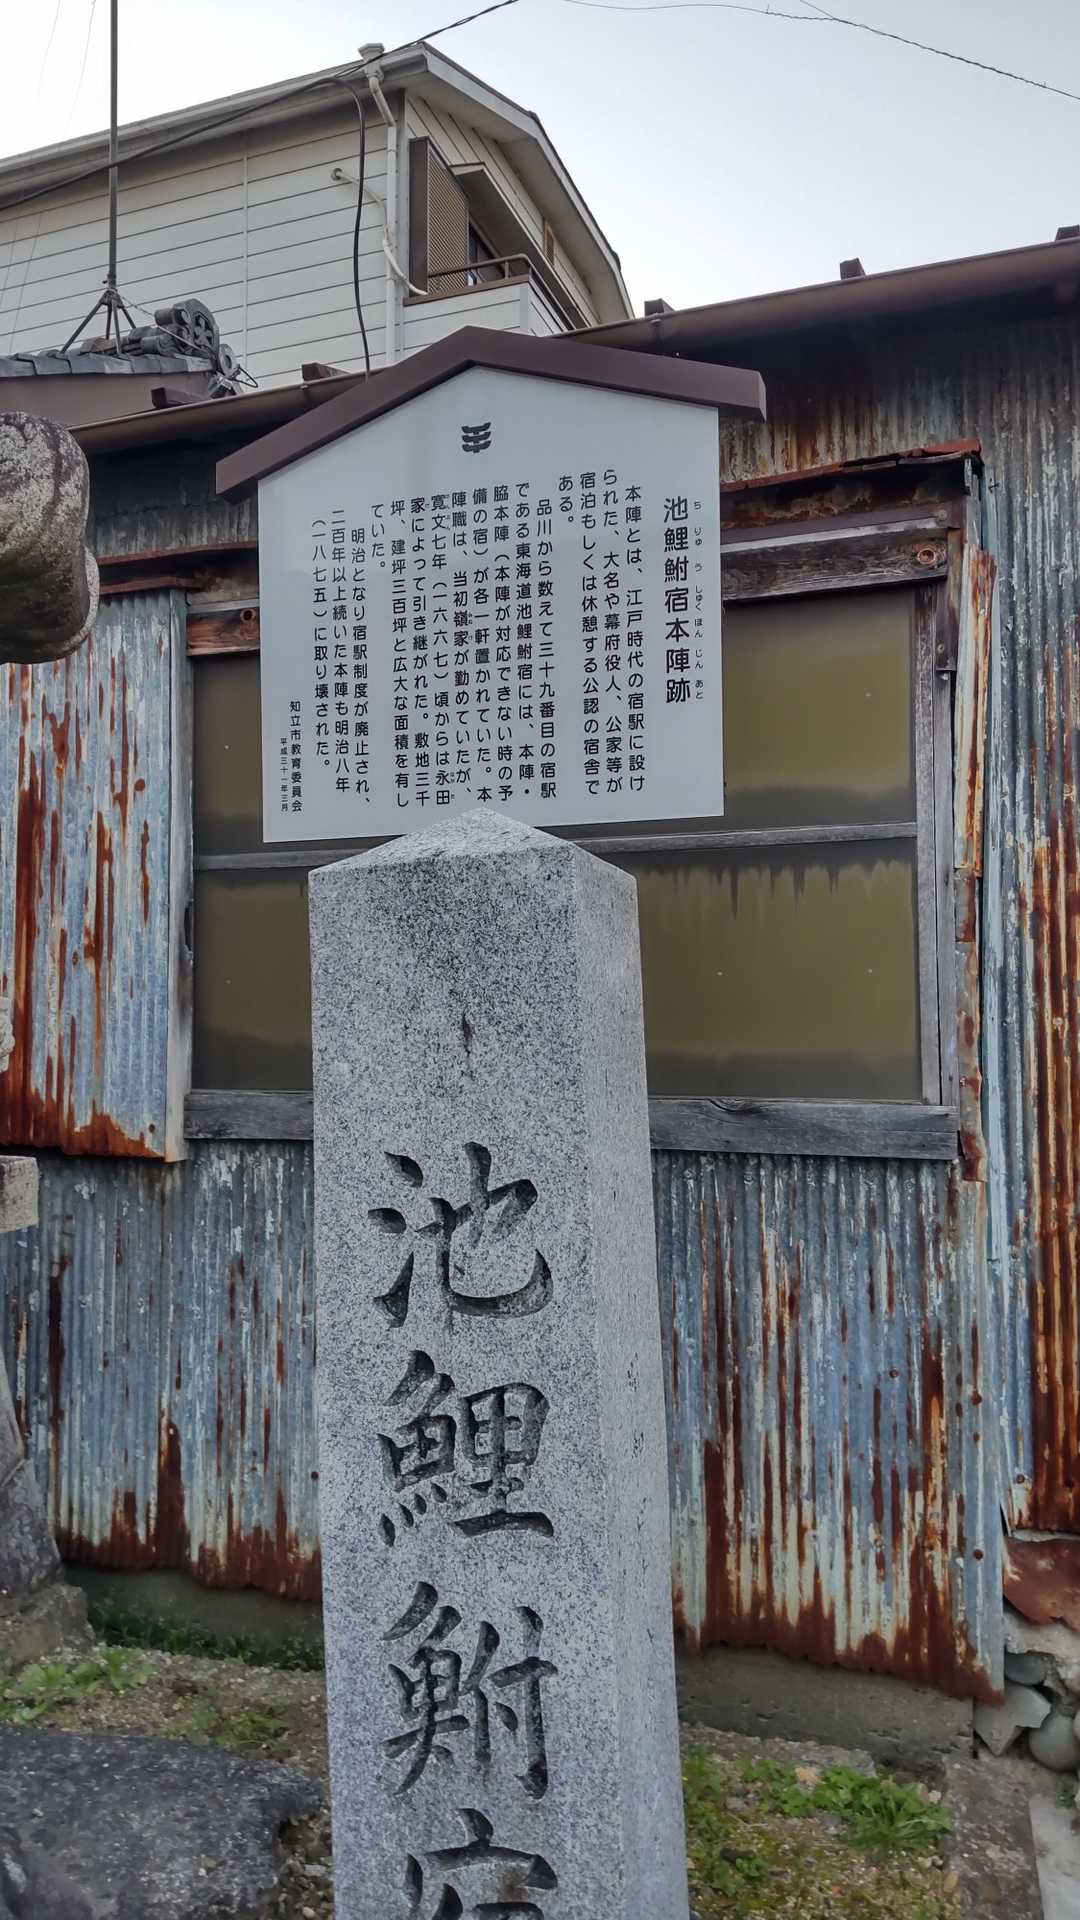 池鯉鮒宿本陣跡
ち りゅ う しゅく ほん じん あと
本陣とは、江戸時代の宿駅に設け
られた、大名や幕府役人、公家等が
宿泊もしくは休憩する公認の宿舎で
ある。
品川から数えて三十九番目の宿駅
である東海道池鯉鮒宿には、本陣・
脇本陣（本陣が対応できない時の予
備の宿）が各一軒置かれていた。本
陣職は、当初嶺家が勤めていたが、
寛文七年（一六六七）頃からは永田
家によって引き継がれた。敷地三千
坪、建坪三百坪と広大な面積を有し
ていた。
明治となり宿駅制度が廃止され、
二百年以上続いた本陣も明治八年
（一八七五）に取り壊された。
知立市教育委員会
平成三十一年三月
池鯉鮒宿